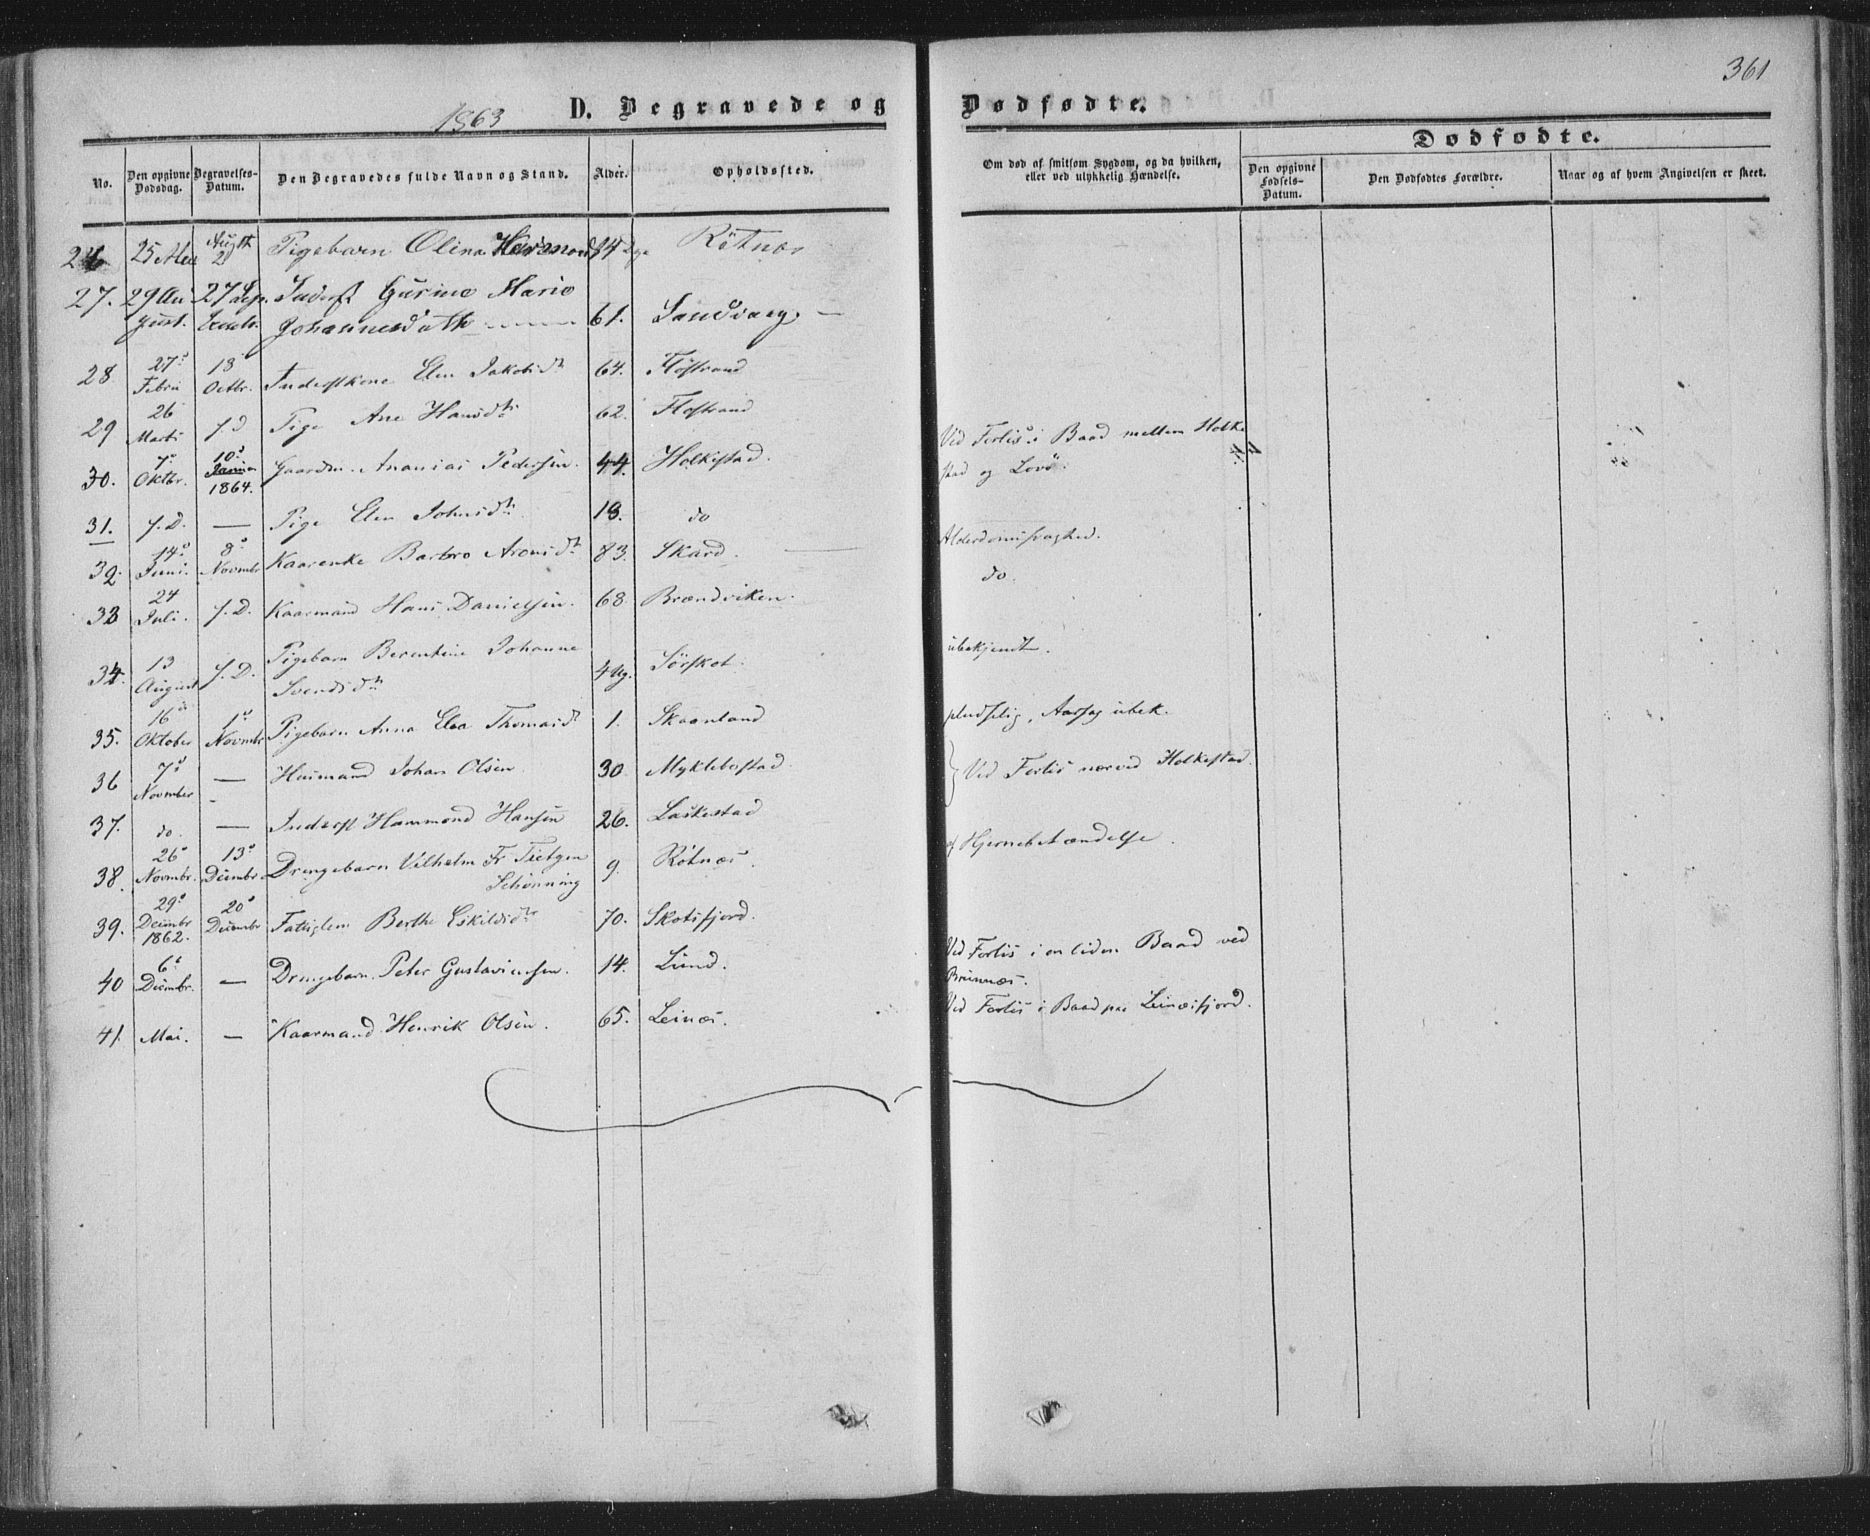 361
1863
D. Begravede og Dødfødte.
Dødfødte.
No.
Den opgivne Dødsdag.
Begravelses-Datum.
Den Begravedes fulde Navn og Stand.
Alder.
Opholdssted.
Om død af smitsom Sygdom, og da hvilken, eller ved ulykkelig Hændelse.
Den opgivne Fødsels-Datum.
Den Dødfødtes Forældre.
Naar og af hvem Angivelsen er skeet.
26 25 Augth 2 Pigebarn Olina 14 Røtnæs
27. 29 Au 27 Sep. Inderst Gurine Marie
gust. Johannesdath 61. Sandvaag
28. 27de Febru 18 Octbr. Inderstkone Elen Jakobsdtr 64. Flöstrand
29 26 Marti s.d Pige Ane Hansdtr 62. Flostrand
30. 7de Oktbr. 10de Januar 1864. Gaardm. Ananias Pedersen. 44. Holkestad. Ved Forlis i Baad mellem Holke
stad og Lovö.
31. s.D. — Pige Elen Johnsdtr 18. do
32. 14de Juni. 8de Novmbr Kaarenke Barbro Aronsdtr 83. Skard. Alderdomssvaghed.
33 24 Juli. s.D. Kaarmand Hans Danielsen. 68. Brændviken. do.
34. 13 August s.D. Pigebarn Berentine Johanne
Svendsdtr 4 Ug. Sörskot. ubekjendt.
35. 16de Oktober 1ste Novmbr Pigebarn Anna Elea Thomasdtr 1. Skaanland pludselig, Aarsag ubek.
36 7de Novmber — Husmand Johan Olsen 30. Myklebostad. Ved Forlis nærved Holkestad
37. do. — Inderst Hammond Hansen 26. Laskestad
38. 26de Novmbr. 13de Decmbr Drengebarn Vilhelm Fr Tietgen
Schønning 9. Rötnæs. af Hjernebetændelse.
39. 29de Decmbr 1862. 20de Decmbr Fatiglem Berthe Eskildsdtr 70. Skotsfjord.
40 6te Decmbr. — Drengebarn Peter Gustavsensen. 14. Lund. Ved Forlis i en liden Baad ved
Brunnæs.
41. Mai. — Kaarmand Henrik Olsen. 65. Leinæs. Ved Forlis i Baad paa Leinæsfjord.